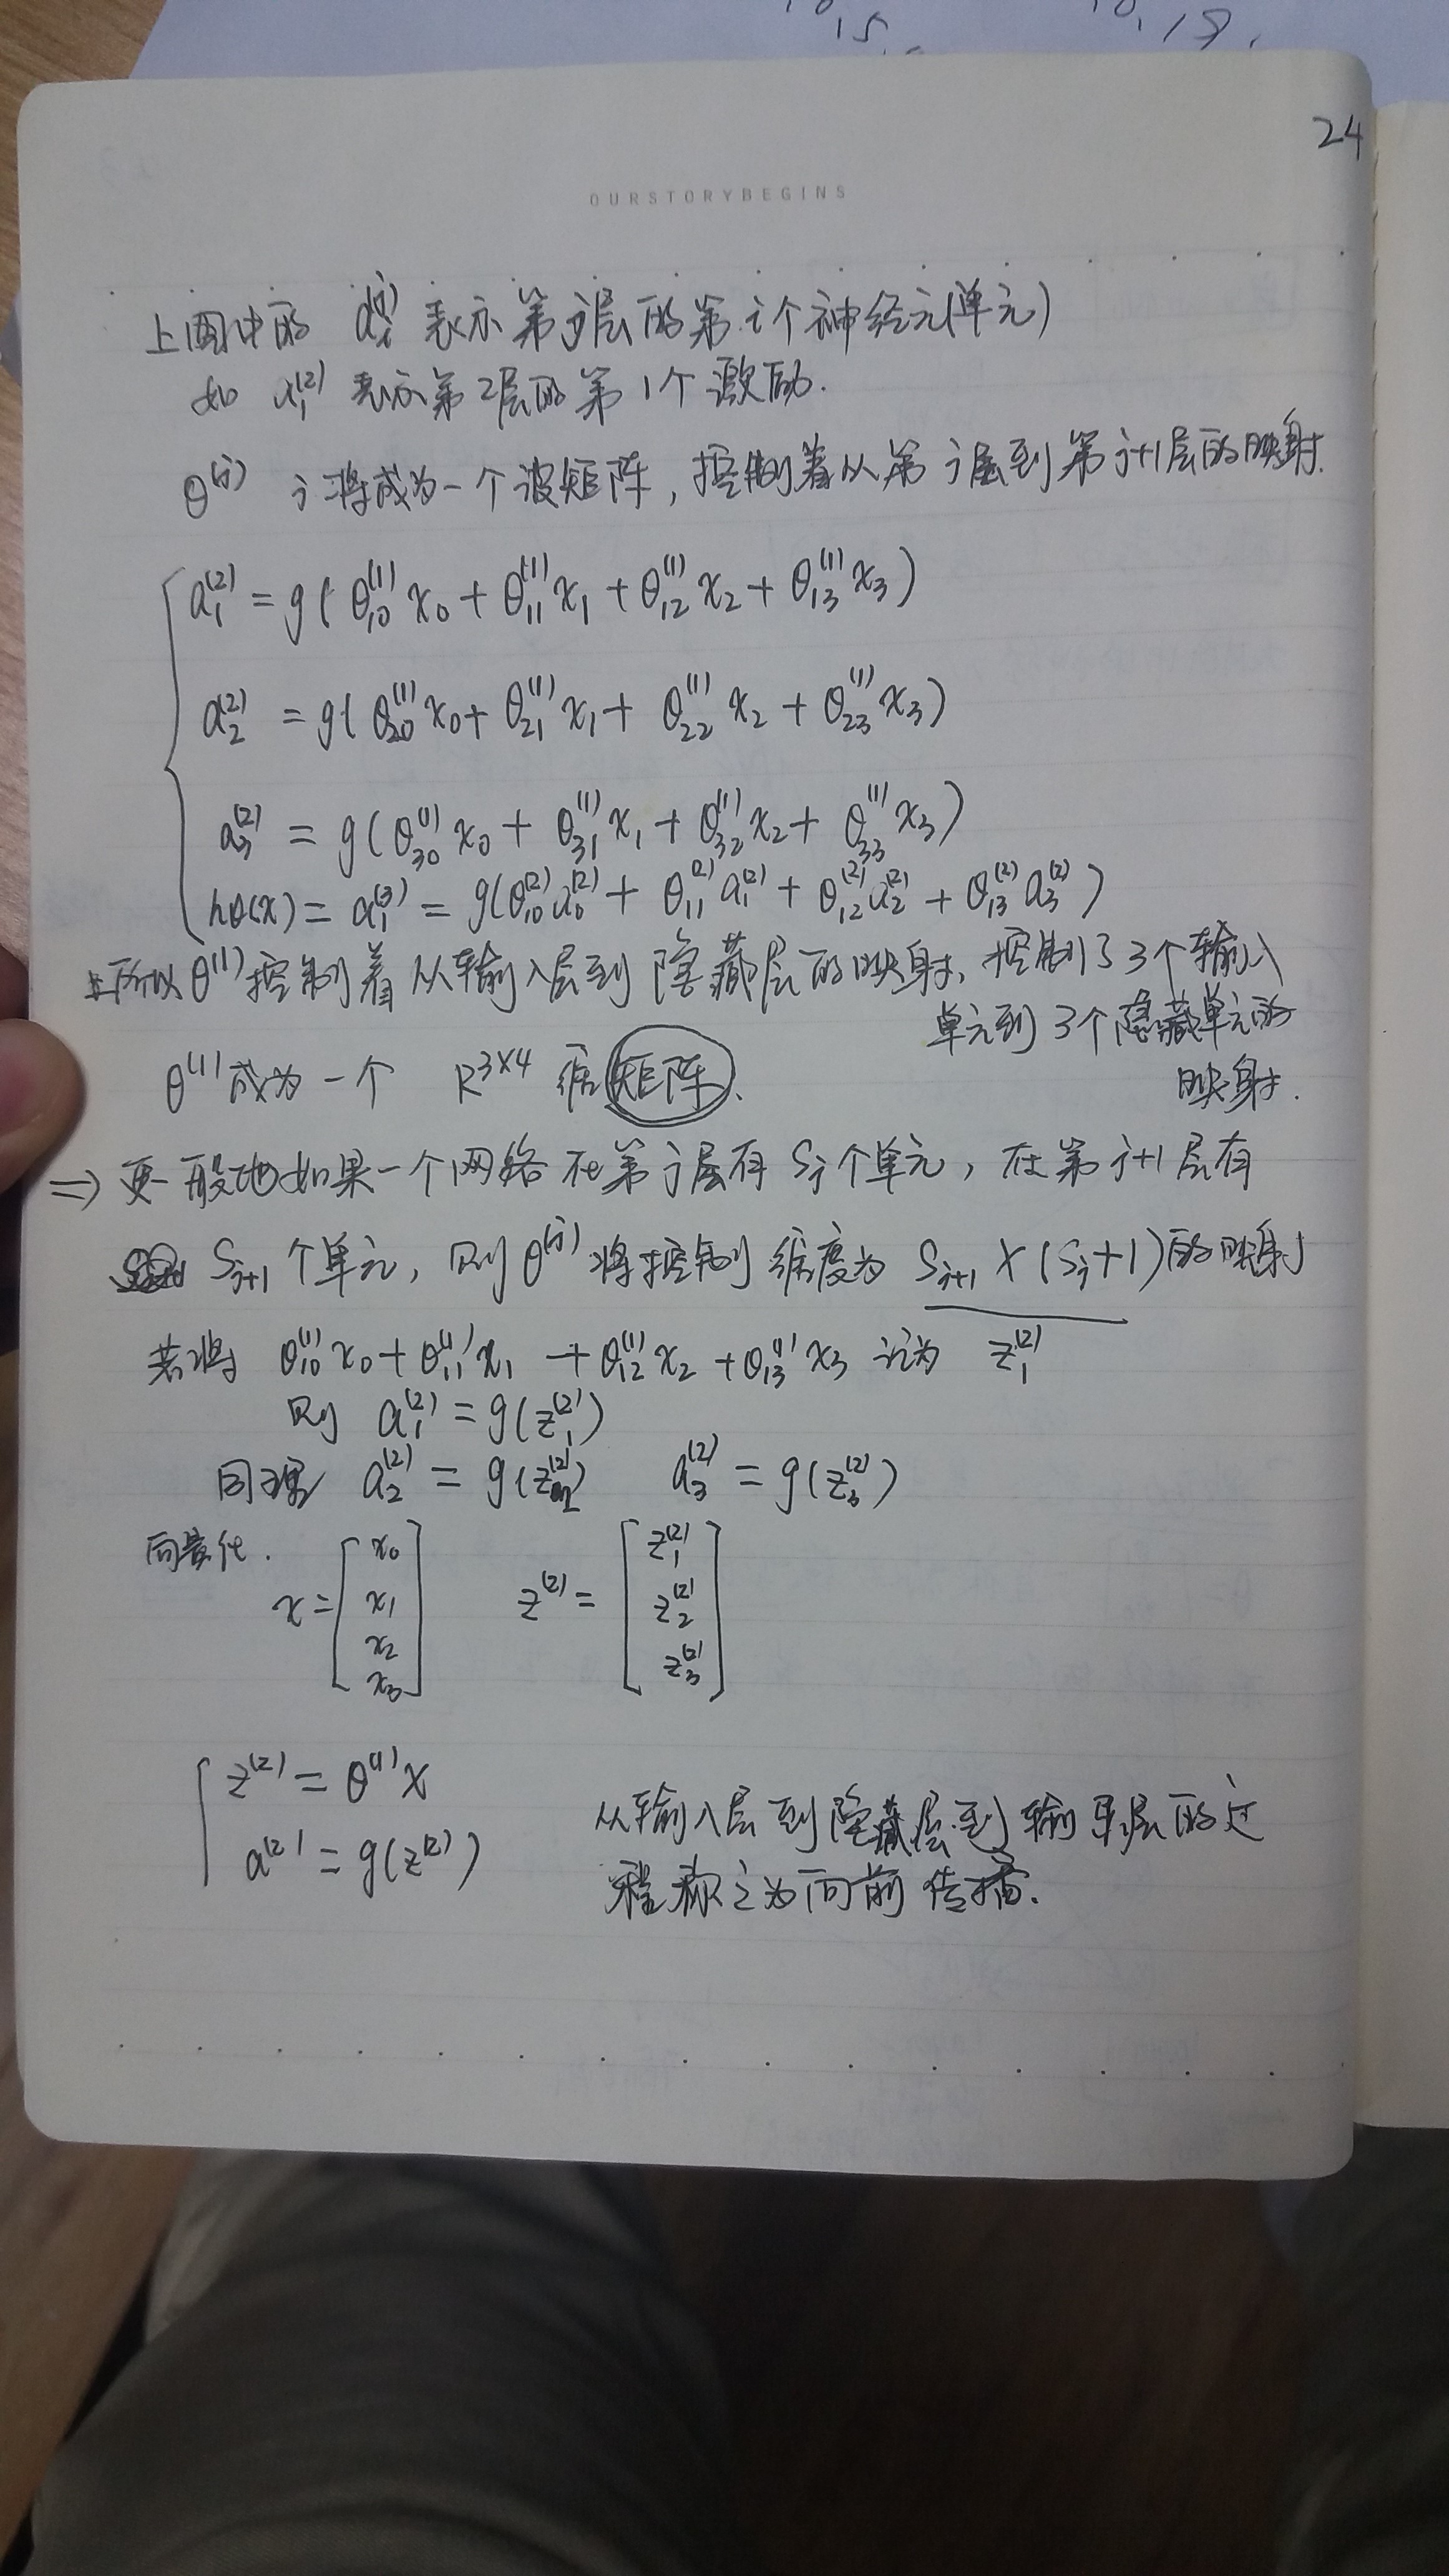 15.
18.
24
OURSTORYBEGINS
上图中的 a_i^(j) 表示第j层的第i个神经元(单元)
如 a_1^(2) 表示第2层的第1个激励.
θ^(j) 将成为一个波矩阵,控制着从第j层到第j+1层的映射.
a_1^(2) = g(θ_10^(1) x_0 + θ_11^(1) x_1 + θ_12^(1) x_2 + θ_13^(1) x_3)
a_2^(2) = g(θ_20^(1) x_0 + θ_21^(1) x_1 + θ_22^(1) x_2 + θ_23^(1) x_3)
a_3^(2) = g(θ_30^(1) x_0 + θ_31^(1) x_1 + θ_32^(1) x_2 + θ_33^(1) x_3)
hθ(x) = a_1^(3) = g(θ_10^(2) a_0^(2) + θ_11^(2) a_1^(2) + θ_12^(2) a_2^(2) + θ_13^(2) a_3^(2))
所以θ^(1)控制着从输入层到隐藏层的映射,控制了3个输入
单元到3个隐藏单元的
映射.
θ^(1)成为一个 R^3×4 维矩阵.
⇒ 更一般地如果一个网络在第j层有S_j个单元,在第j+1层有
S_j+1个单元,则θ^(j)将控制维度为 S_j+1 × (S_j+1)的映射
若将 θ_10^(1) x_0 + θ_11^(1) x_1 + θ_12^(1) x_2 + θ_13^(1) x_3 记为 z_1^(2)
则 a_1^(2) = g(z_1^(2))
同理 a_2^(2) = g(z_2^(2)) a_3^(2) = g(z_3^(2))
向量化.
x = [x_0 x_1 x_2 x_3] z^(2) = [z_1^(2) z_2^(2) z_3^(2)]
z^(2) = θ^(1) x
a^(2) = g(z^(2))
从输入层到隐藏层到输出层的过
程称之为向前传播.